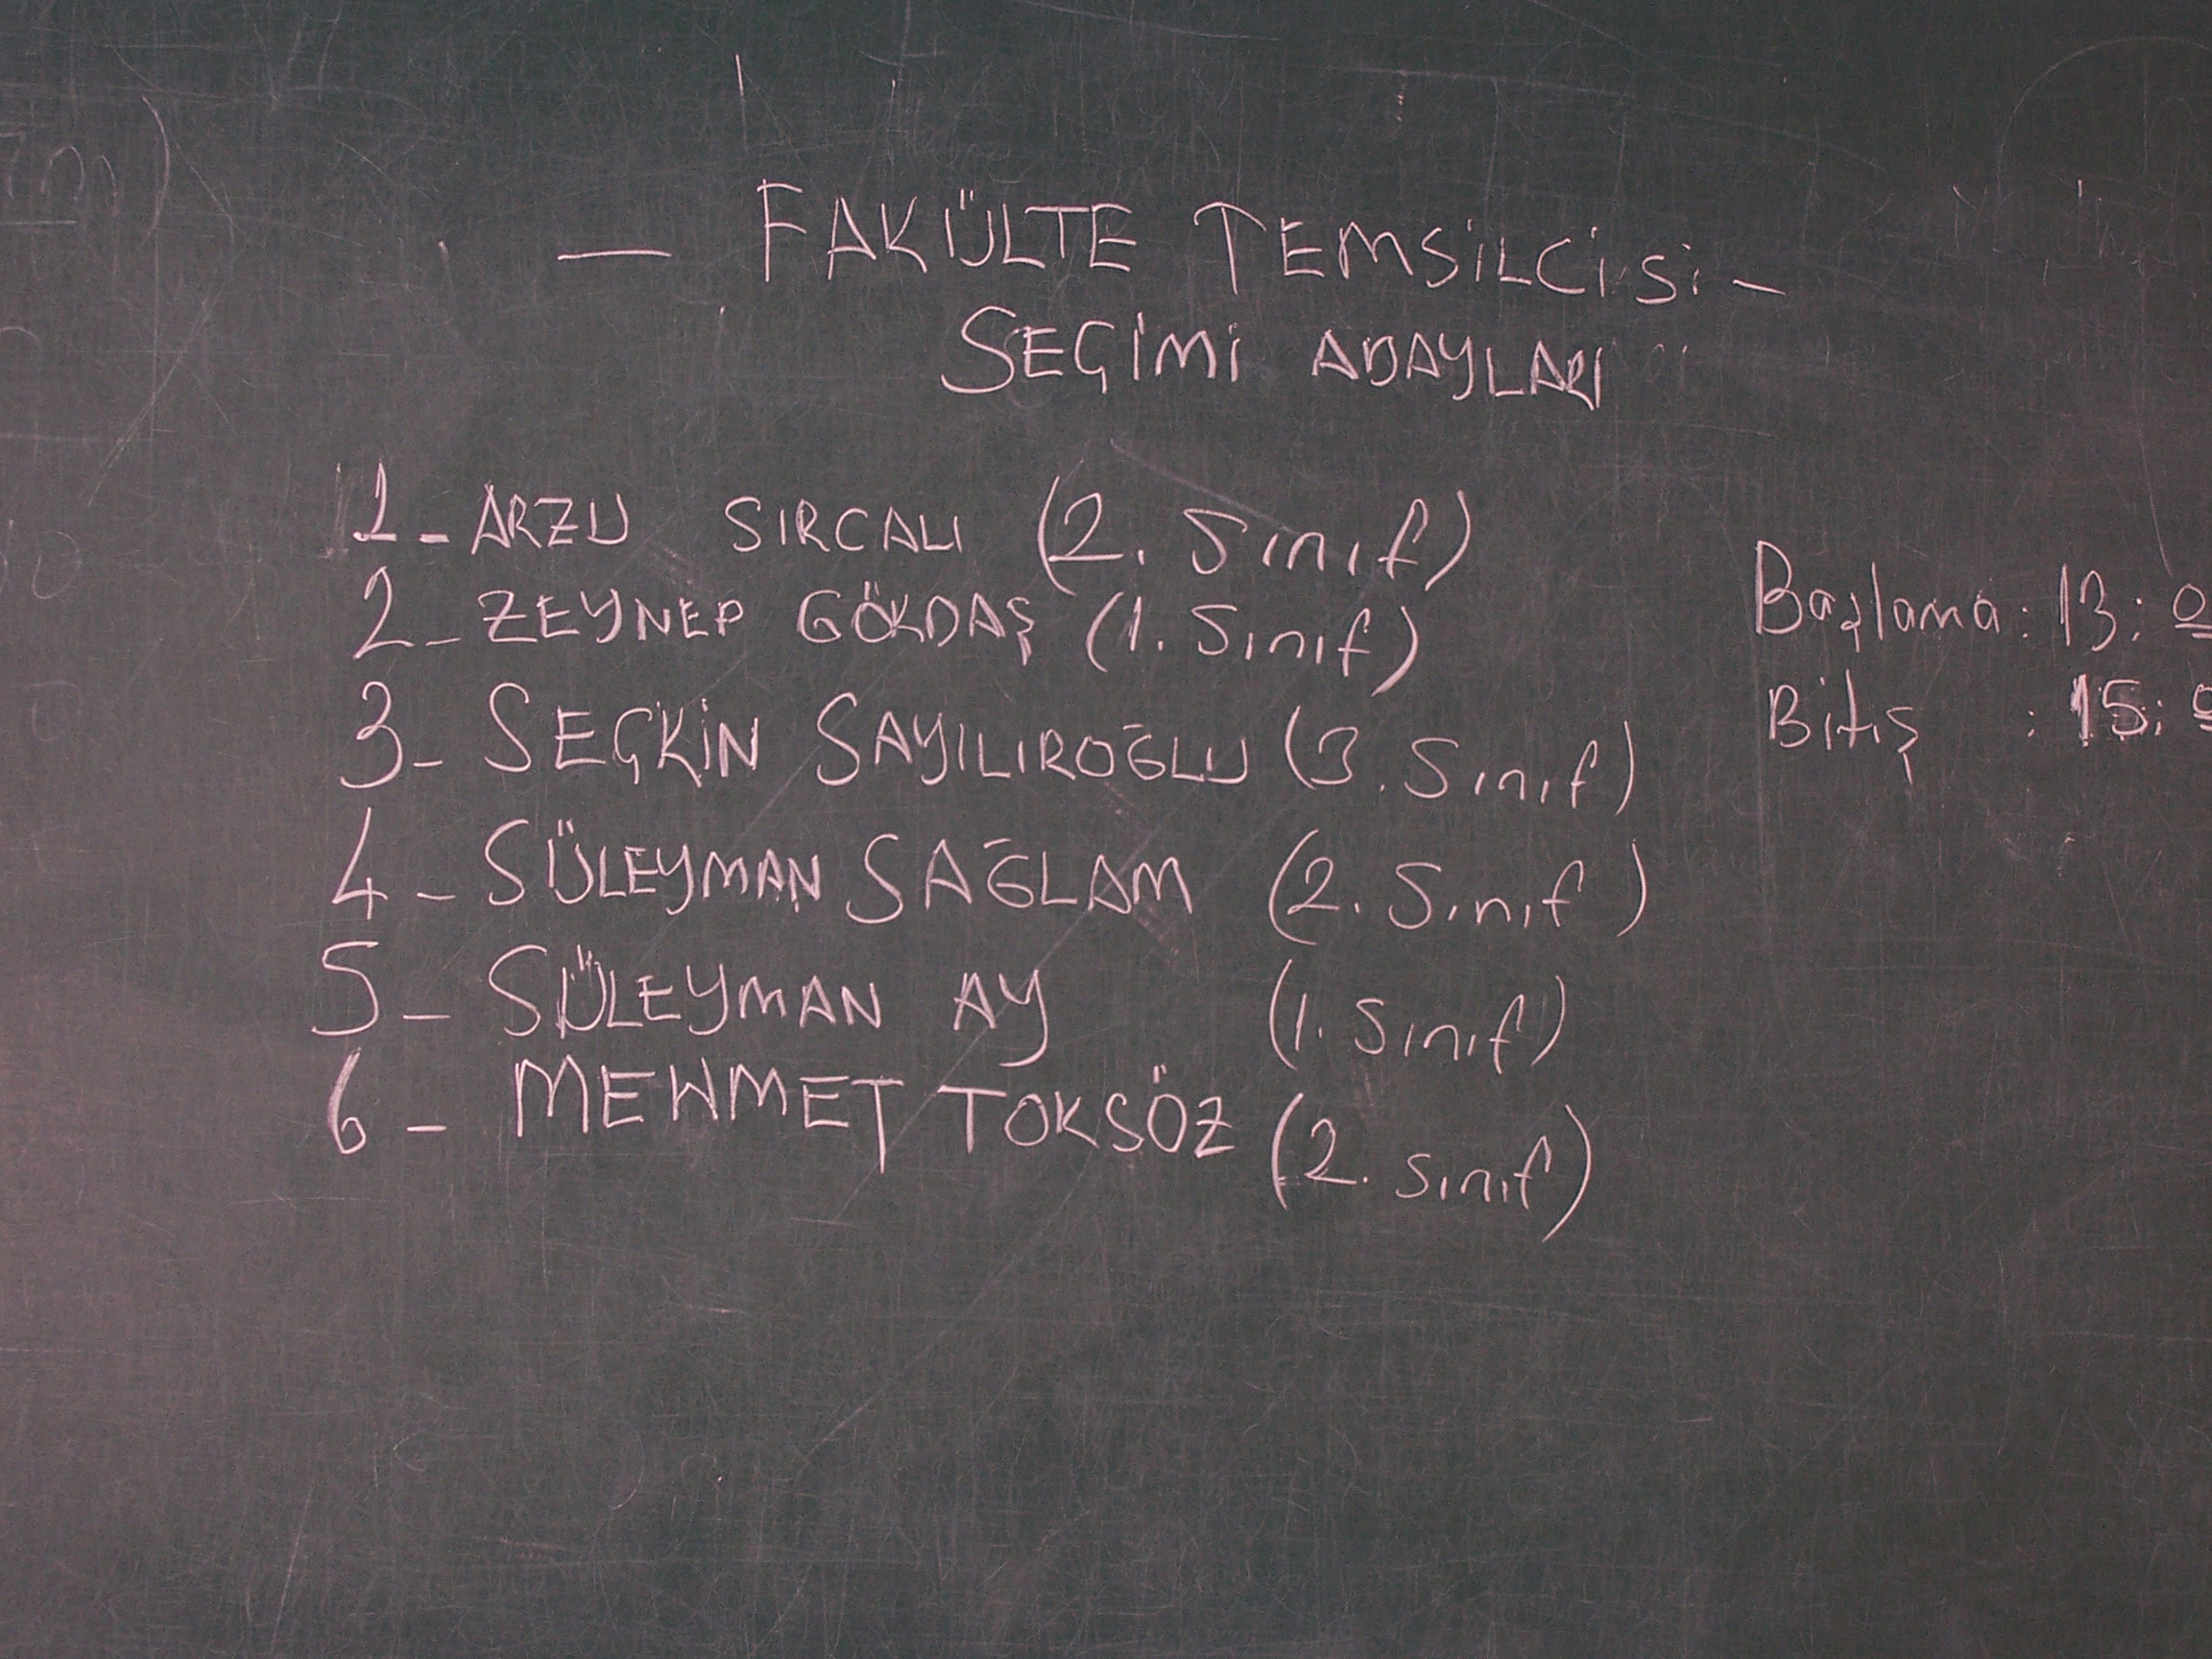 — FAKÜLTE TEMSİLCİSİ —
SEÇİMİ ADAYLARI
1 - ARZU SIRCALI (2. Sınıf)
2 - ZEYNEP GÖKDAŞ (1. Sınıf)
3 - SEÇKİN SAYILIROĞLU (3. Sınıf)
4 - SÜLEYMAN SAĞLAM (2. Sınıf)
5 - SÜLEYMAN AY (1. Sınıf)
6 - MEHMET TOKSÖZ (2. Sınıf)
Başlama : 13:
Bitiş : 15: